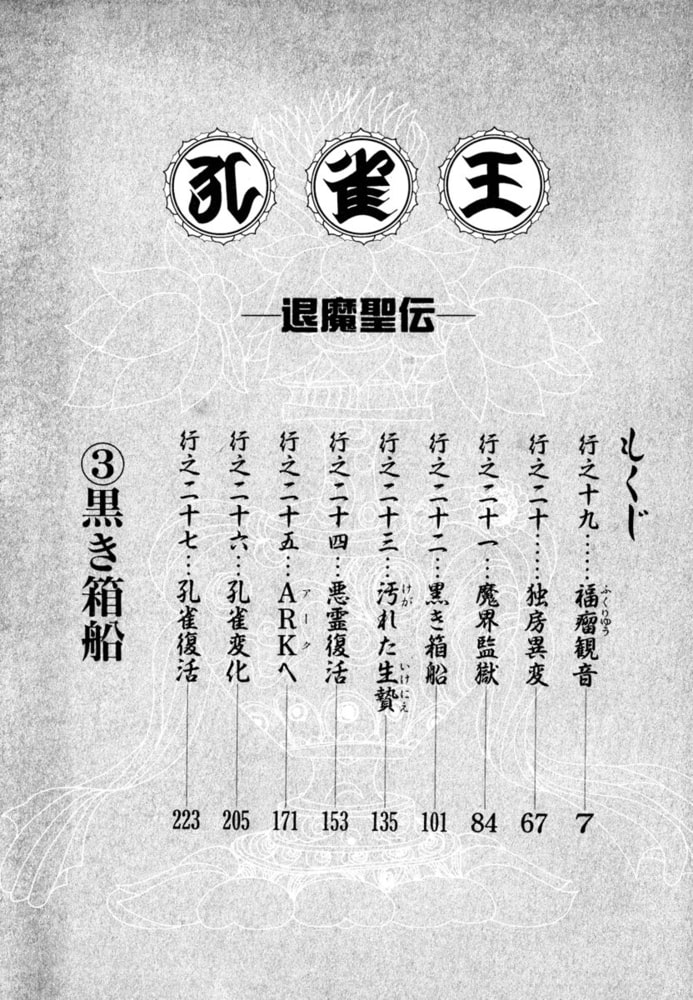 孔雀王
退魔聖伝
もくじ
行之十九……福瘤観音 7
ふくりゆう
行之二十……独房異変 67
行之二十一…魔界監獄 84
行之二十二…黒き箱船 101
行之二十三…汚れた生贄 135
けが
いけにえ
行之二十四…悪霊復活 153
行之二十五…ARKへ 171
アーク
行之二十六…孔雀変化 205
行之二十七…孔雀復活 223
③黒き箱船